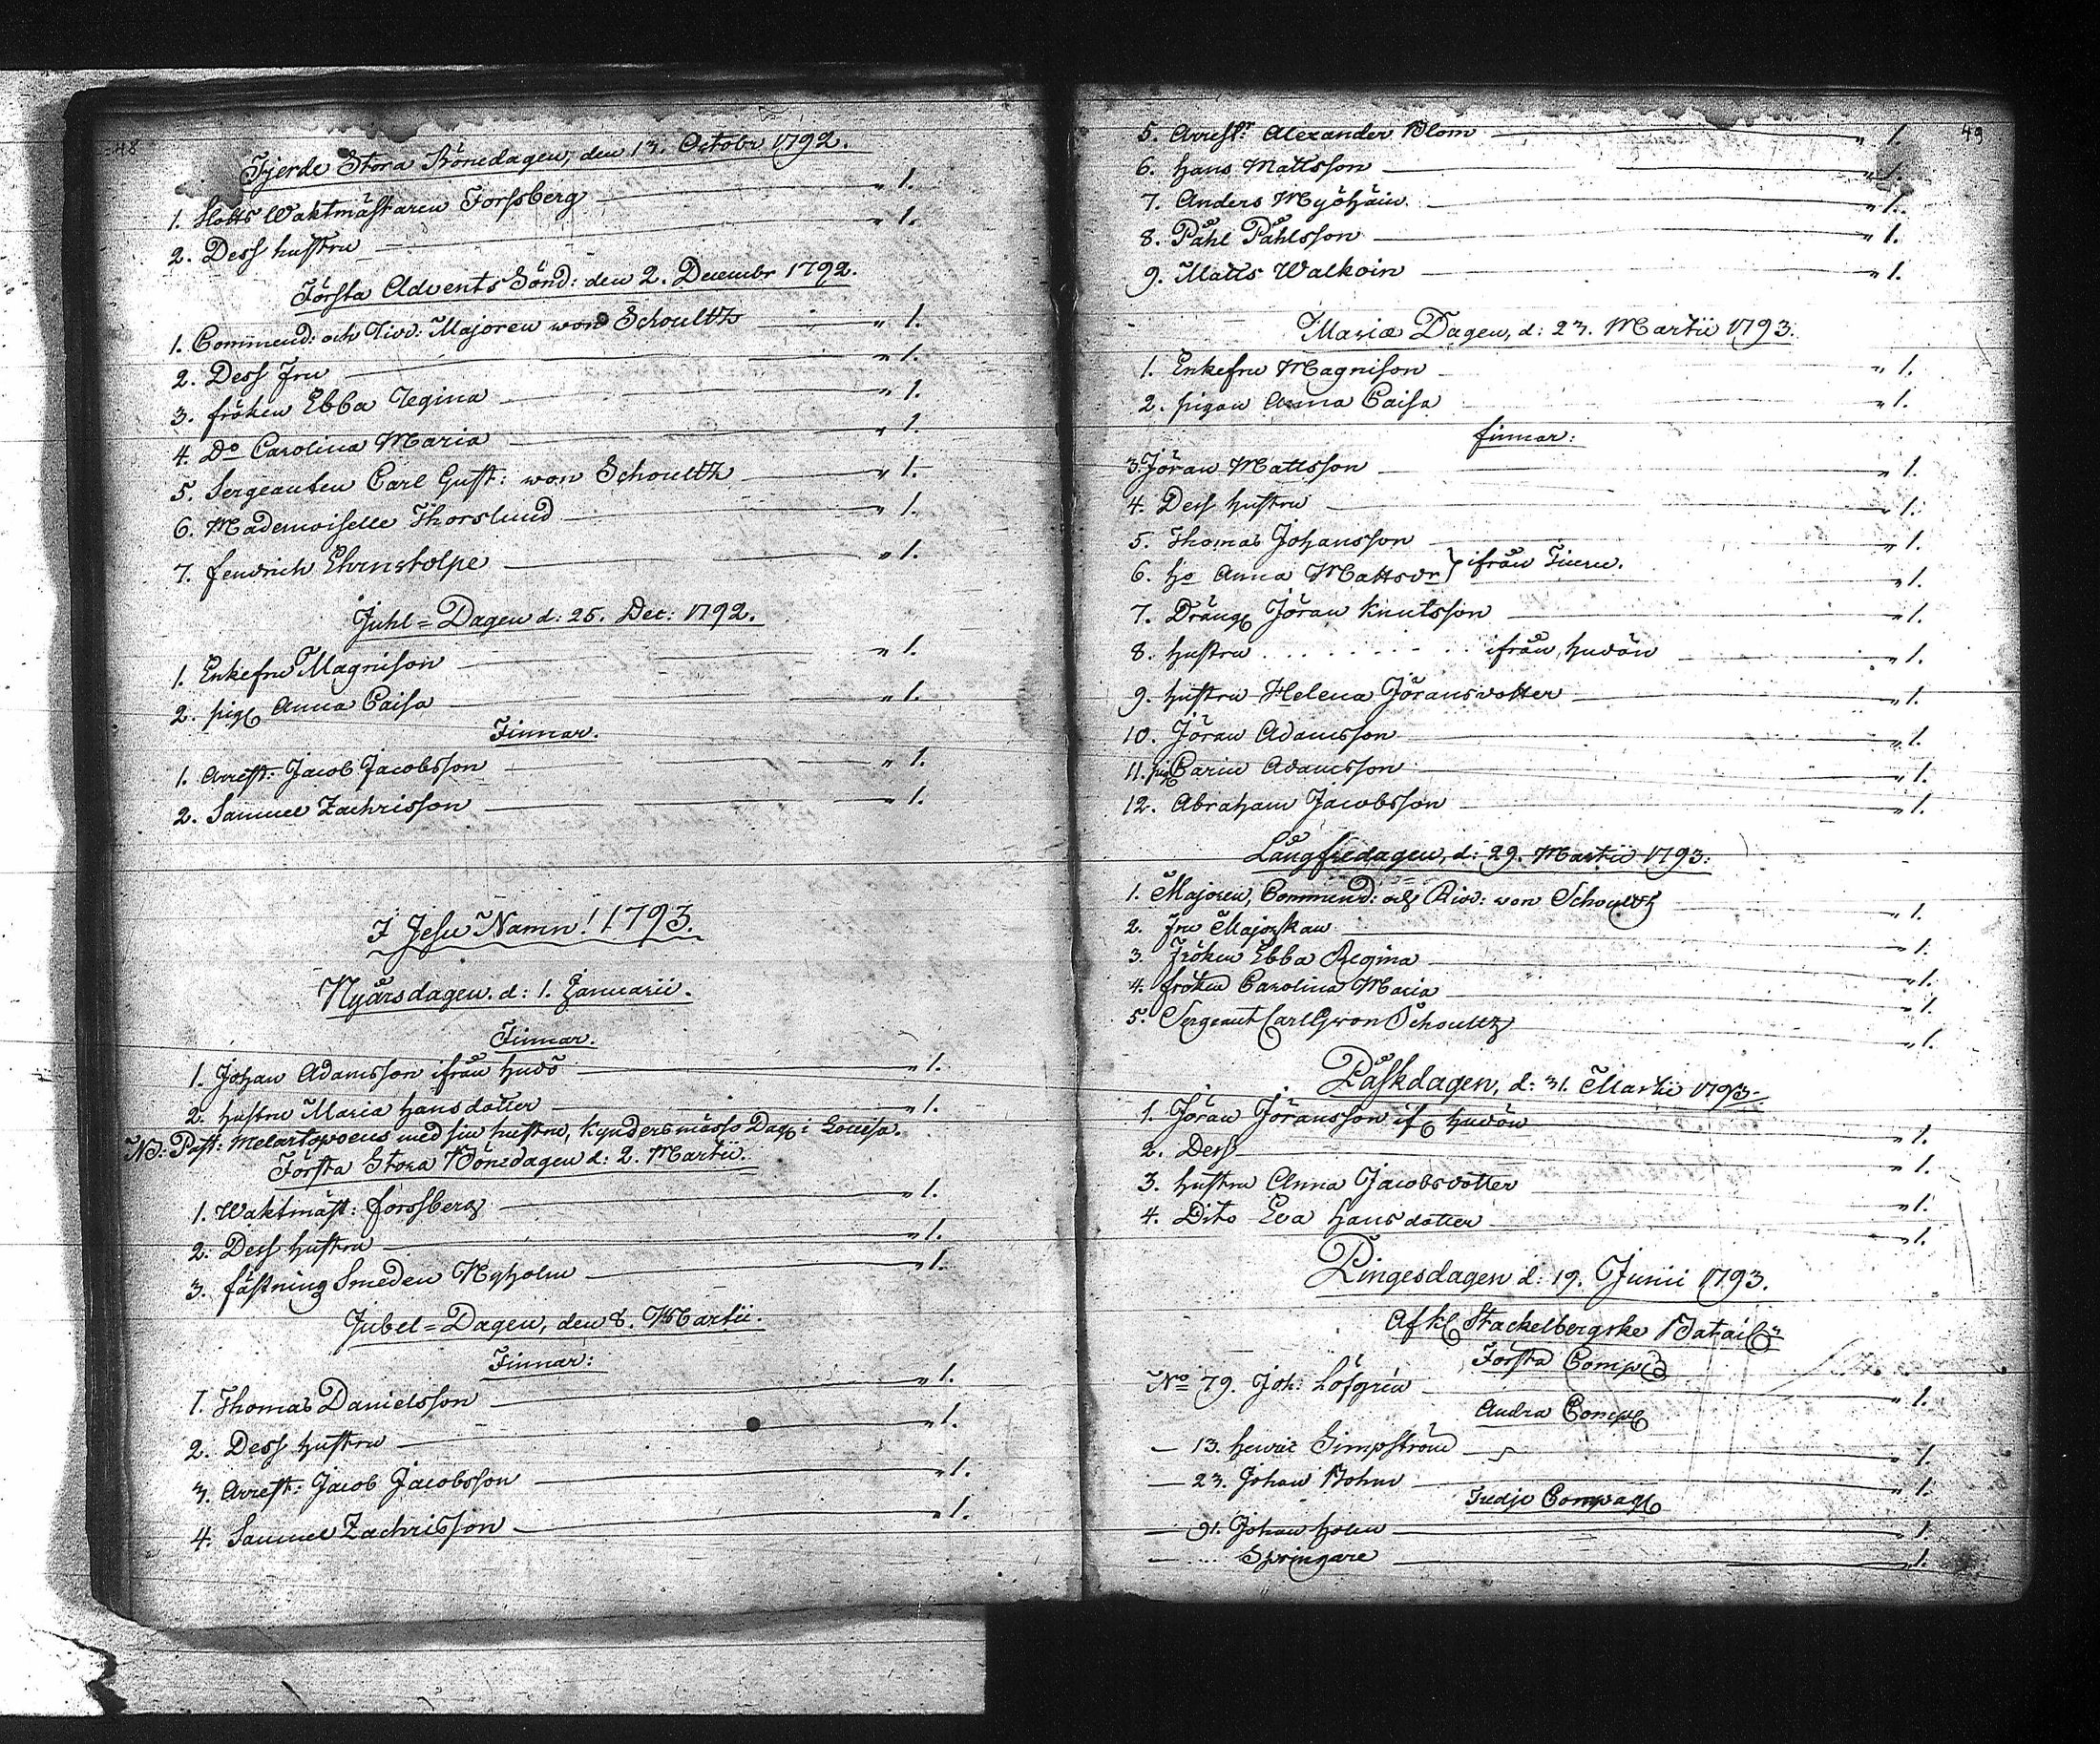 48
Fjerde Stora Bönedagen, den 13. Octobr 1792.
1. Slotts Waktmästaren Forssberg — „ 1.
2. Dess hustru — „ 1.
Första Advents Sönd: den 2. Decembr 1792.
1. Commend: och Rid: Majoren von Schoultz — „ 1.
2. Dess Fru — „ 1.
3. fröken Ebba Regina — „ 1.
4. Do Carolina Maria — „ 1.
5. Sergeanten Carl Gust: von Schoultz — „ 1.
6. Mademoiselle Thorslund — „ 1.
7. fendrich Ehrnstolpe — „ 1.
Juhl=Dagen d: 25. Dec: 1792.
1. Enkefru Magnison — „ 1.
2. pig Anna Caisa — „ 1.
Finnar.
1. Arrest: Jacob Jacobsson — „ 1.
2. Samuel Zachrisson — „ 1.
I Jesu Namn! 1793.
Nyårsdagen. d: 1. Januarii.
Finnar.
1. Johan Adamsson ifrån hudö — „ 1.
2. hustru Maria hansdotter — „ 1.
NB: Past: Melartopoeus med sin hustru, Kyndersmässo Dag i Lovisa.
Första Stora Bönedagen d: 2. Martii.
1. Waktmäst: forssberg — „ 1.
2. Dess hustru — „ 1.
3. fästning Smeden Nyholm — „ 1.
Jubel=Dagen, den 8. Martii.
Finnar:
1. Thomas Danielsson — „ 1.
2. Dess hustru — „ 1.
3. Arrest: Jacob Jacobsson — „ 1.
4. Samuel Zachrisson — „ 1.
49
5. Arrestr Alexander Blom — „ 1.
6. hans Mattsson — „ 1.
7. Anders Myöhäin — „ 1.
8. Påhl Påhlsson — „ 1.
9. Matts Walkoin — „ 1.
Mariæ Dagen, d: 23. Martii 1793.
1. Enkefru Magnison — „ 1.
2. pigan Anna Caisa — „ 1.
finnar:
3. Jöran Mattsson — „ 1.
4. Dess hustru — „ 1.
5. Thomas Johansson — „ 1.
6. ho Anna Mattsdr } ifrån — „ 1.
7. Dräng Jöran Knutsson — „ 1.
8. hustru . . . . . . . . ifrån hudön — „ 1.
9. hustru Helena Jöransdotter — „ 1.
10. Jöran Adamsson — „ 1.
11. pig Carin Adamsson — „ 1.
12. Abraham Jacobsson — „ 1.
Långfredagen, d: 29. Martii 1793.
1. Majoren, Commend: och Rid: von Schoultz — „ 1.
2. Fru Majorskan — „ 1.
3. Fröken Ebba Regina — „ 1.
4. fröken Carolina Maria — „ 1.
5. Sergeant Carl G von Schoultz — „ 1.
Påskdagen, d: 31. Martii 1793.
1. Jöran Jöransson if hudön — „ 1.
2. Dess — „ 1.
3. hustru Anna Jacobsdotter — „ 1.
4. Dito Eva hansdotter — „ 1.
Pingesdagen d: 19. Junii 1793.
Af Kl Stackelbergske Batailn
Forsta Comp
No 79. Joh: Löfgren — „ 1.
Andra Comp
— 13. henric Gimpström — „ 1.
— 23. Johan Bohm — „ 1.
Tredje Compag
— 91. Johan holm — 1.
— ... Springare — „ 1.